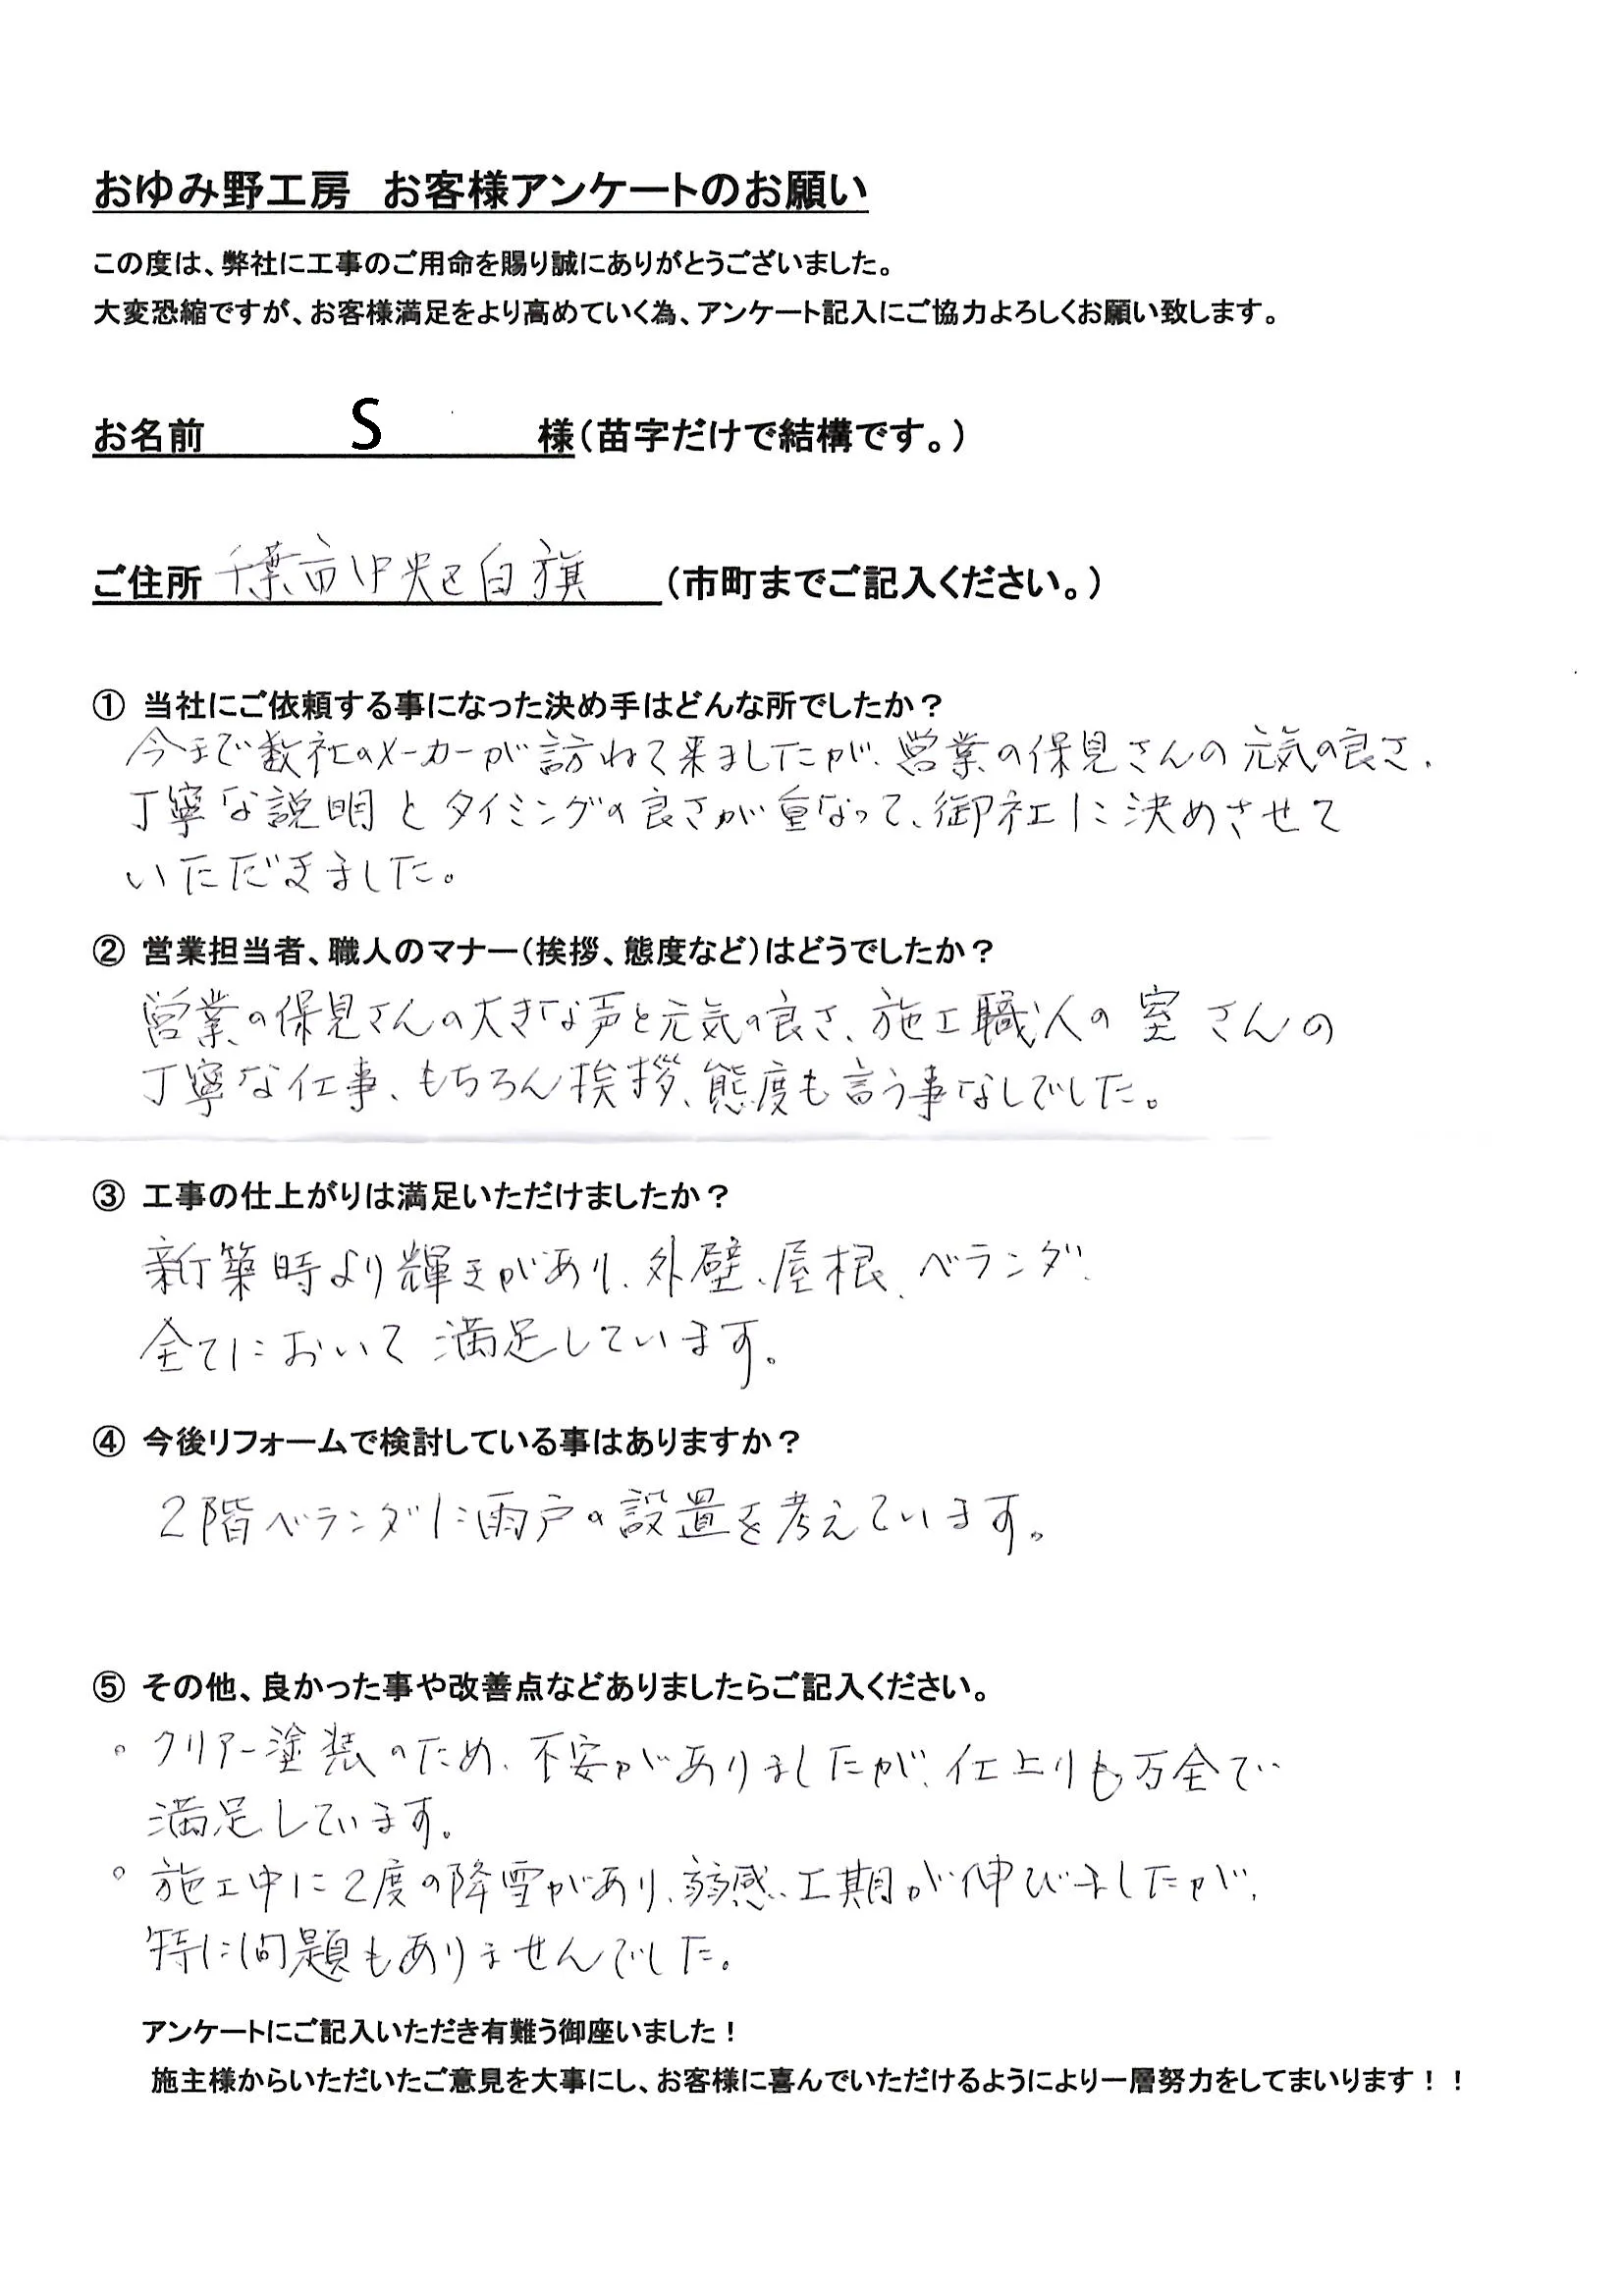 おゆみ野工房 お客様アンケートのお願い
この度は、弊社に工事のご用命を賜り誠にありがとうございました。
大変恐縮ですが、お客様満足をより高めていく為、アンケート記入にご協力よろしくお願い致します。
お名前 S 様(苗字だけで結構です。)
ご住所 千葉市中央区白旗 (市町までご記入ください。)
① 当社にご依頼する事になった決め手はどんな所でしたか？
今まで数社のメーカーが訪ねて来ましたが、営業の保見さんの元気の良さ、
丁寧な説明とタイミングの良さが重なって、御社に決めさせて
いただきました。
② 営業担当者、職人のマナー(挨拶、態度など)はどうでしたか？
営業の保見さんの大きな声と元気の良さ、施工職人の室さんの
丁寧な仕事、もちろん挨拶、態度も言う事なしでした。
③ 工事の仕上がりは満足いただけましたか？
新築時より輝きがあり、外壁、屋根、ベランダ、
全てにおいて満足しています。
④ 今後リフォームで検討している事はありますか？
2階ベランダに雨戸の設置を考えています。
⑤ その他、良かった事や改善点などありましたらご記入ください。
○ クリアー塗装のため、不安がありましたが、仕上りも万全で
満足しています。
○ 施工中に2度の降雪があり、工期が伸びましたが、
特に問題もありませんでした。
アンケートにご記入いただき有難う御座いました！
施主様からいただいたご意見を大事にし、お客様に喜んでいただけるようにより一層努力をしてまいります！！